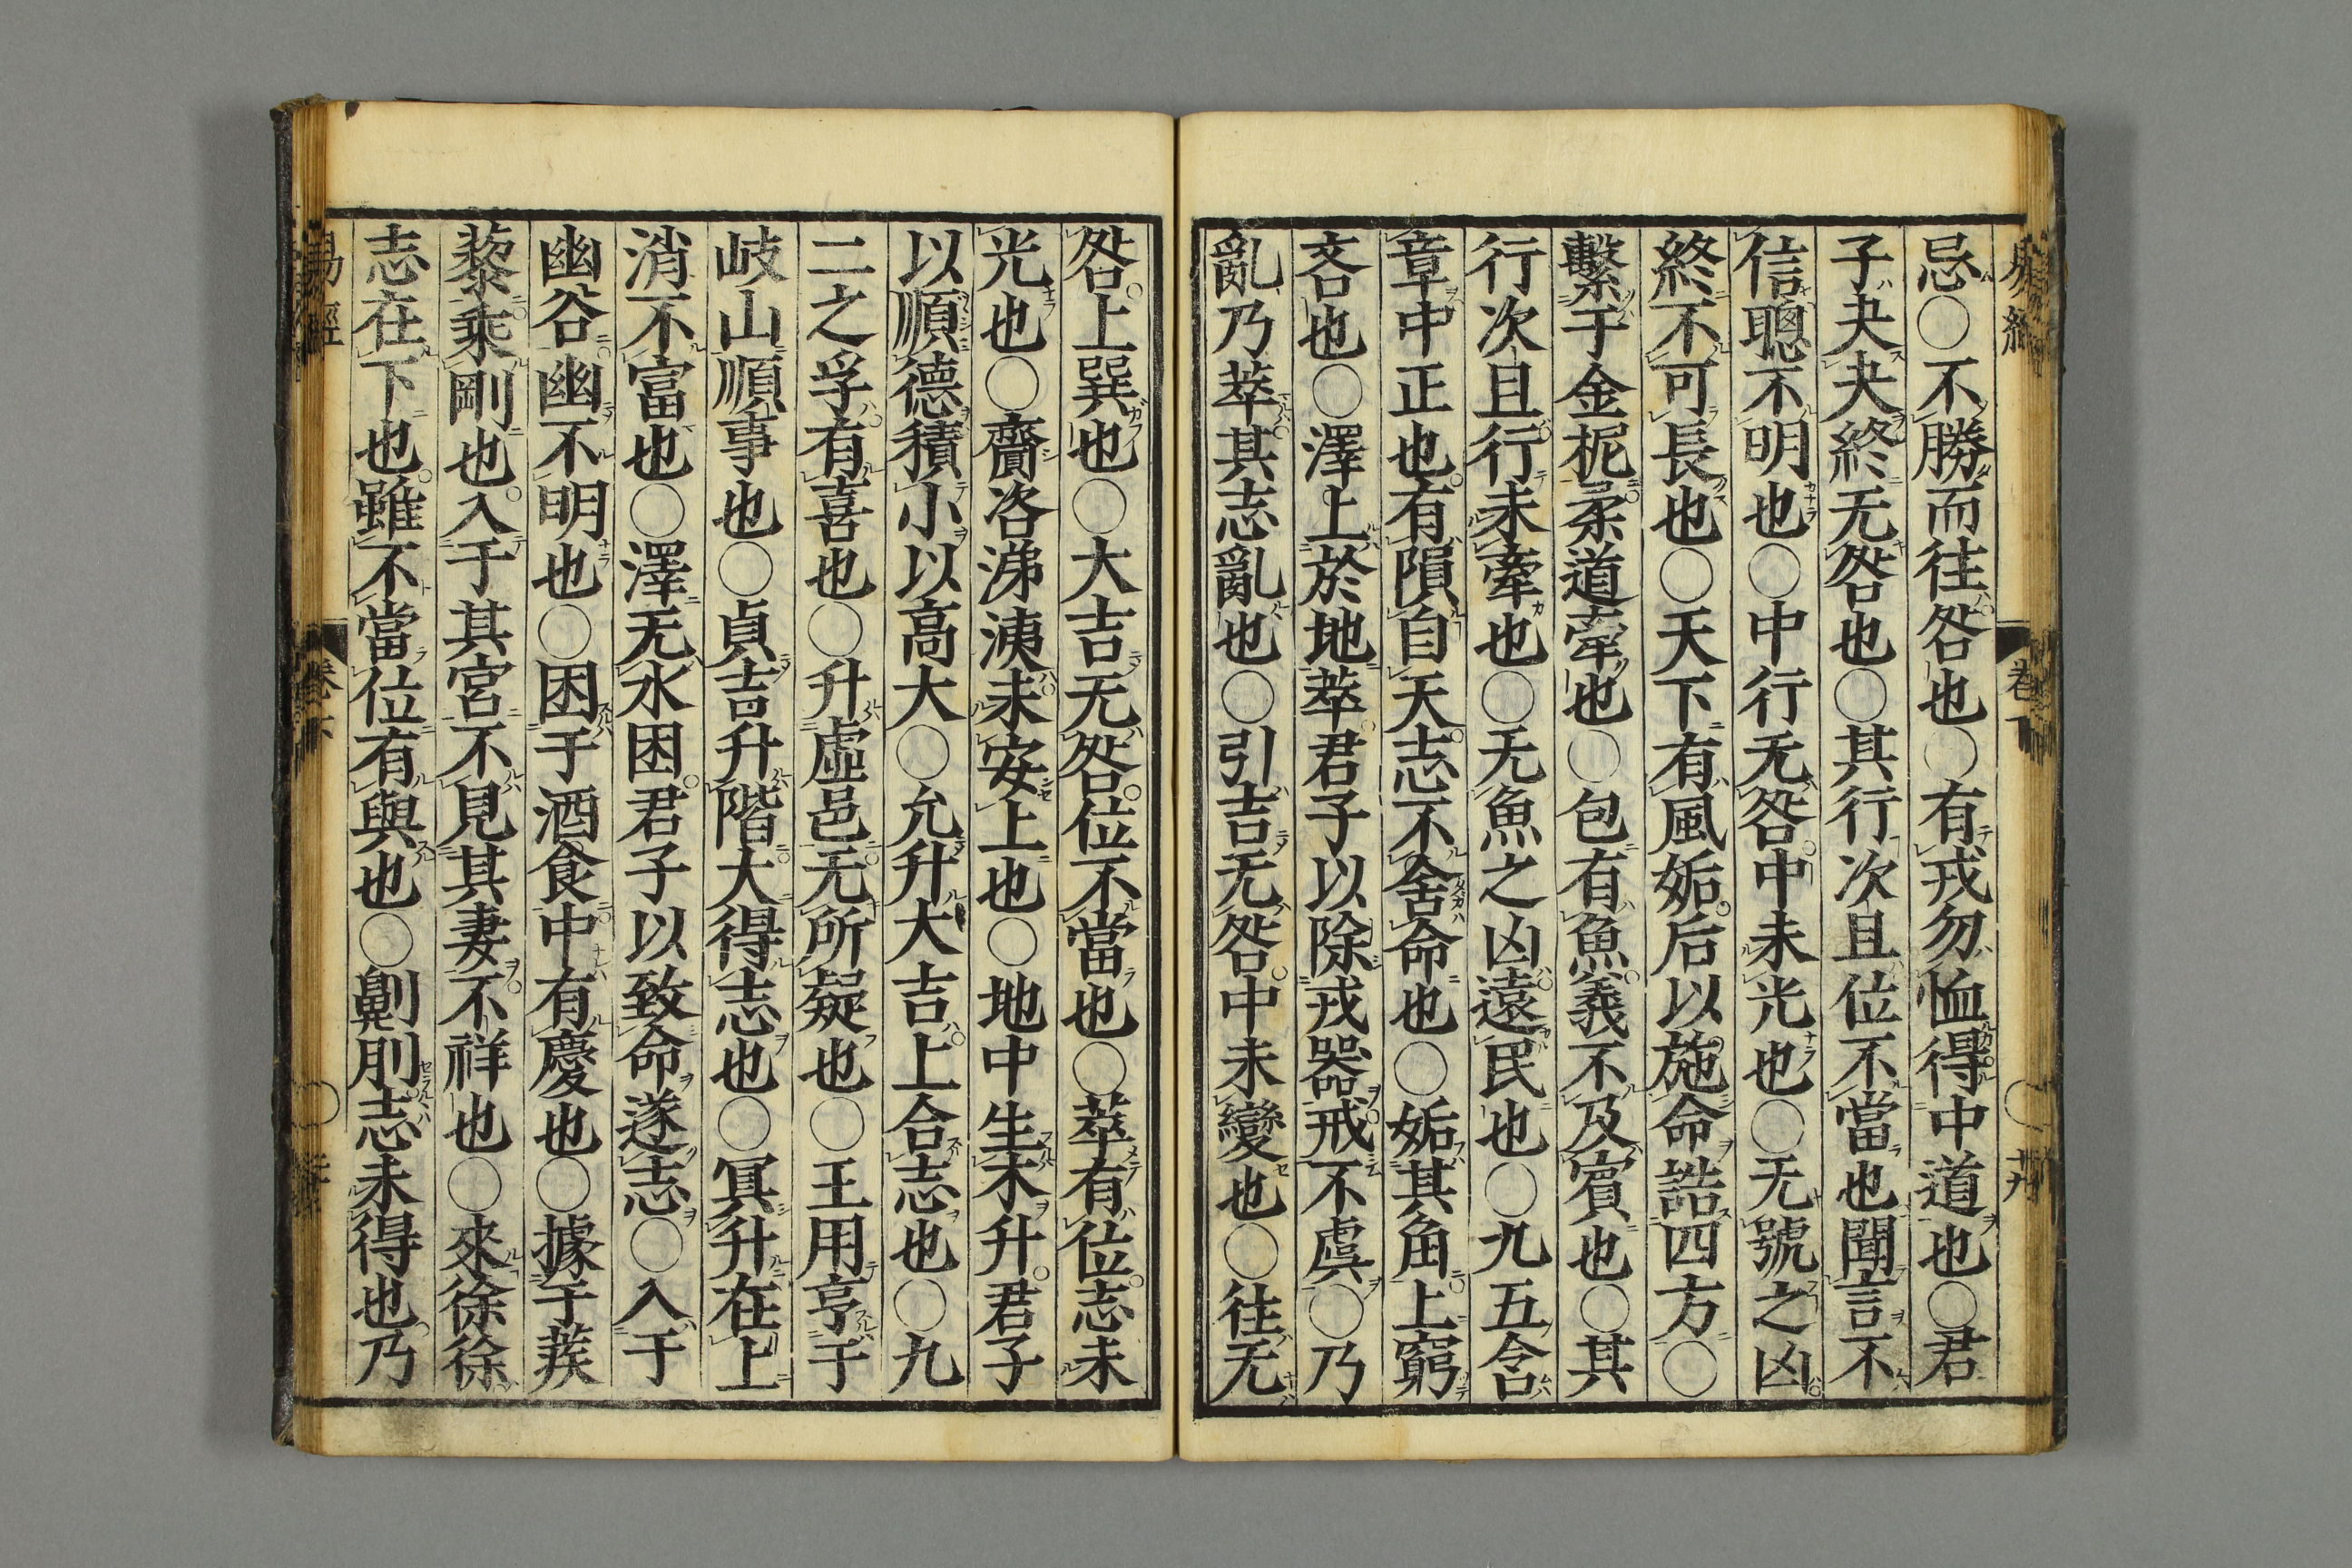 易經 卷下
忌○不勝而往咎也○有戎勿恤得中道也○君
子夬夬終无咎也○其行次且位不當也聞言不
信聰不明也○中行无咎中未光也○无號之凶
終不可長也○天下有風姤后以施命誥四方○
繫于金柅柔道牽也○包有魚義不及賓也○其
行次且行未牽也○无魚之凶遠民也○九五含
章中正也有隕自天志不舍命也○姤其角上窮
吝也○澤上於地萃君子以除戎器戒不虞○乃
亂乃萃其志亂也○引吉无咎中未變也○往无
咎上巽也○大吉无咎位不當也○萃有位志未
光也○齎咨涕洟未安上也○地中生木升君子
以順德積小以高大○允升大吉上合志也○九
二之孚有喜也○升虛邑无所疑也○王用亨于
岐山順事也○貞吉升階大得志也○冥升在上
消不富也○澤无水困君子以致命遂志○入于
幽谷幽不明也○困于酒食中有慶也○據于蒺
藜乘剛也入于其宮不見其妻不祥也○來徐徐
志在下也雖不當位有與也○劓刖志未得也乃
易經 卷下